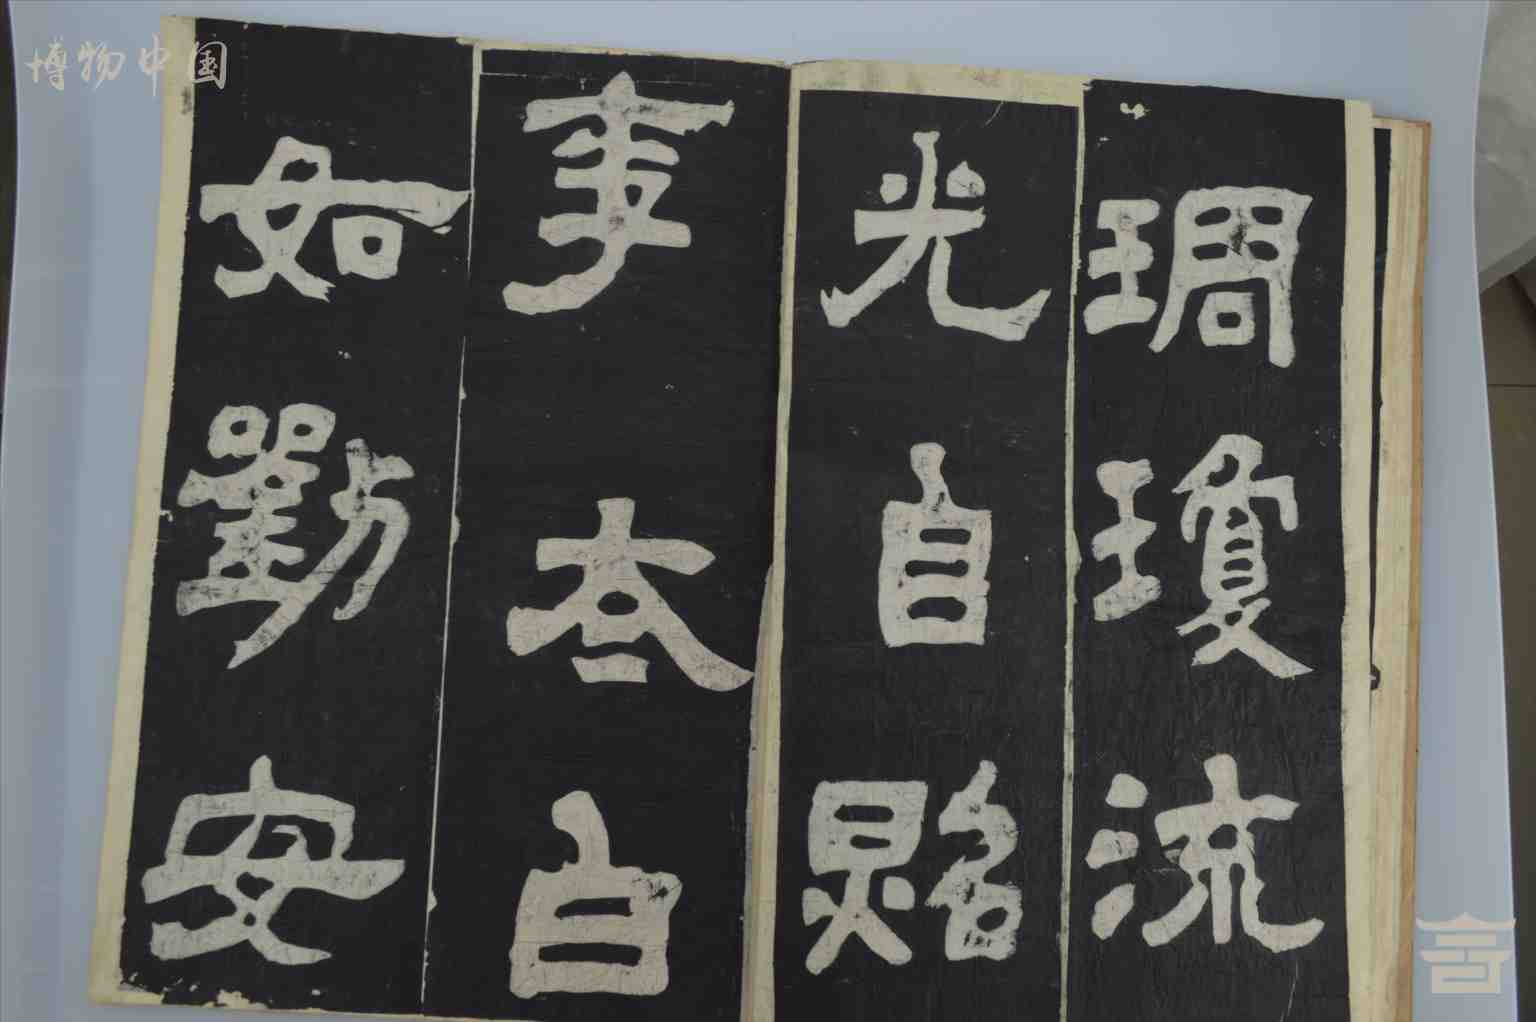 琱瓊流
光自照
事白
如勸安
博物中国